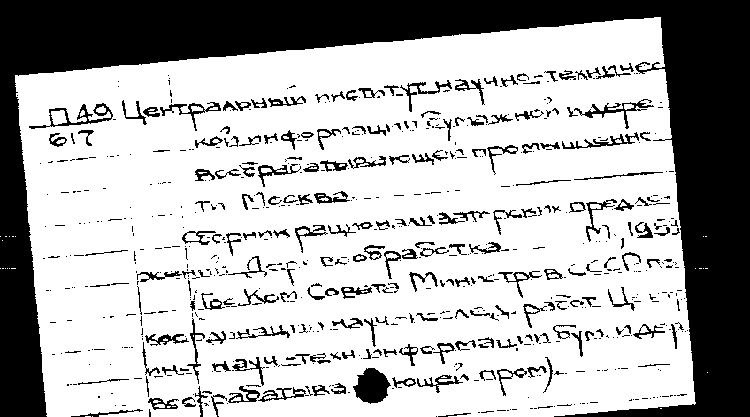 П49 Центральный институт научно-техничес
617 кой информации бумажной и дере-
вообрабатывающей промышленнос
ти Москва
Сборник рационализаторских предло-
жений Дер. вообработка М., 1959
(Гос. Ком. Совета Министров СССР по
координации науч.-исслед. работ Центр
ин-т науч.-техн. информации бум. и дер
вообрабатыва ющей пром).